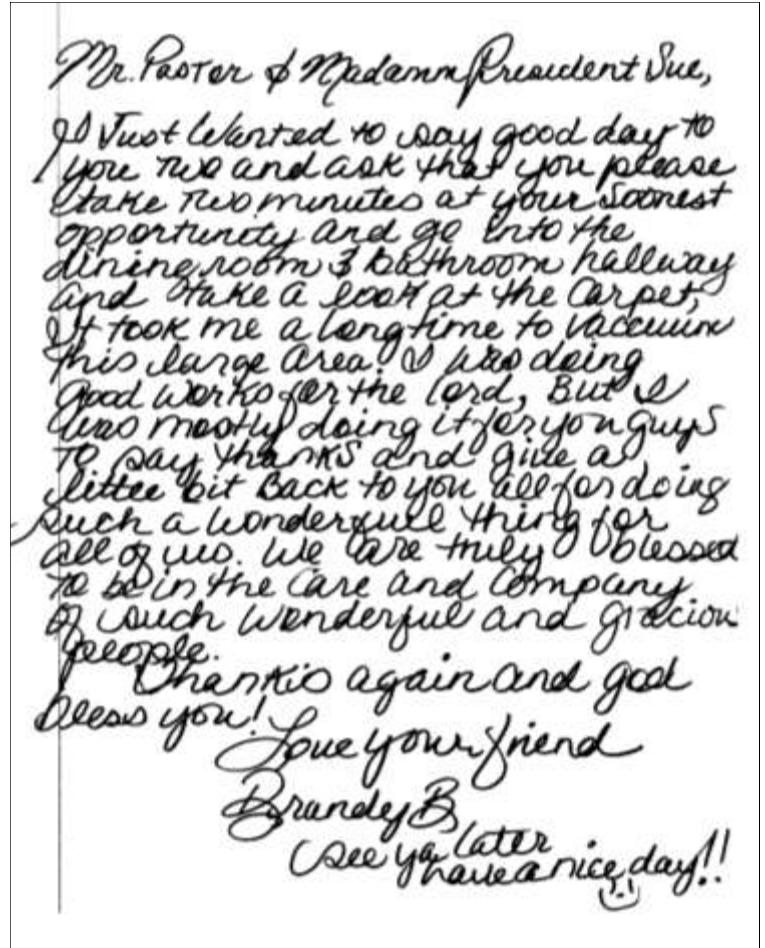 Mr. Paster & Madamm President Sue,
I Just Wanted to say good day to
you two and ask that you please
take two minutes at your Soonest
opportunity and go into the
dining room & bathroom hallway
and take a look at the Carpet,
It took me a long time to vaccuum
this large area. I was doing
Good works for the lord, But I
was mostly doing it for you guys
To say thanks and give a
little bit Back to you all for doing
such a wonderfull thing for
all of us. We are truly blessed
to be in the Care and Company
of such wonderful and graciou
people.
Thanks again and god
bless you!
Love your friend
Brandy B.
See ya later
have a nice day!!